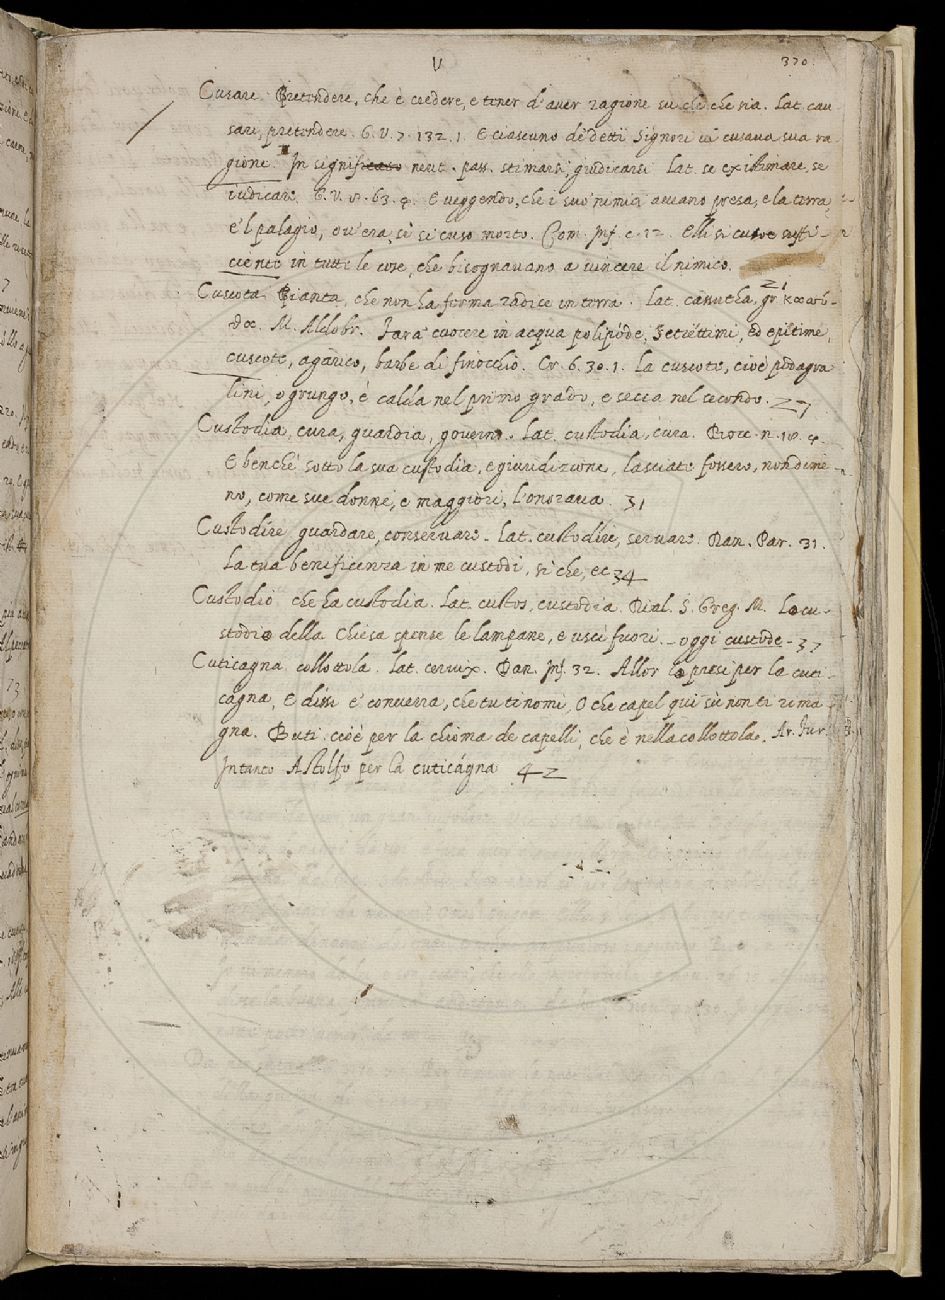 V
370.
Cusare. Pretendere, che è credere, e tener d'aver ragione su che che sia. Lat. cau-
sari, pretendere. G. V. 7. 132. 1. E ciascuno de' detti Signori vi cusava sua ra
gione. In significato neut. pass. stimarsi, giudicarsi Lat. se existimare, se
iudicare. G. V. 8. 63. 4. E veggendo, che i suoi nimici aveano presa, e la terra,
e 'l palagio, ov' era, si si cusò morto. Com. Inf. c. 12. Elli si cusoe suffi-
ciente in tutte le cose, che bisognavano a vincere il nimico.
21
Cuscuta Pianta, che non ha ferma radice in terra. Lat. cassutha, gr.
M. Aldobr. Farà cuocere in acqua polipode, ed epitime,
cuscute, agarico, barbe di finocchio. Cr. 6. 30. 1. La cuscute, cioè podagra
lini, o grungo, è calda nel primo grado, e secca nel secondo. 27
Custodia, cura, guardia, governo. Lat. custodia, cura. Bocc. n. 18. 4.
E benchè sotto la sua custodia, e giuridizione, lasciate fossero, nondime-
no, come sue donne, e maggiori, l'onorava. 31
Custodire guardare, conservare. Lat. custodire, servare. Dan. Par. 31.
La tua benificenza in me custodi, sì che, ec 34
Custodio che ha custodia. Lat. custos, custodia. Dial. S. Greg. M. Lo cu-
stodio della Chiesa spense le lampane, e uscì fuori. - oggi custode - 37
Cuticagna collottola. Lat. cervix. Dan. Inf. 32. Allor lo presi per la cuti-
cagna, E dissi e' converrà, che tu ti nomi, O che capel qui su non ti rima
gna. Buti. cioè per la chioma de capelli, che è nella collottola. Ar. Fur.
Intanto Astolfo per la cuticagna 42